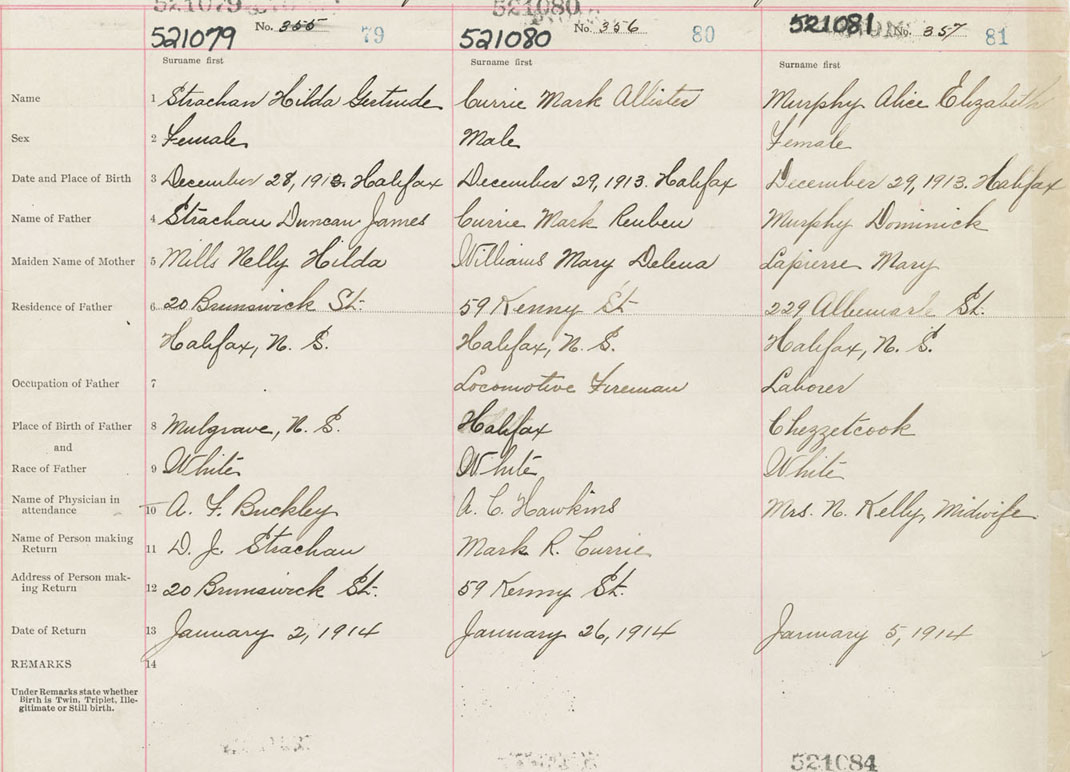 521079 521080
521079 No. 355 79 521080 No. 356 80 521081 No. 357 81
Surname first Surname first Surname first
Name 1 Strachan Hilda Gertrude Currie Mark Allister Murphy Alice Elizabeth
Sex 2 Female Male Female
Date and Place of Birth 3 December 28, 1913. Halifax December 29, 1913. Halifax December 29, 1913. Halifax
Name of Father 4 Strachan Duncan James Currie Mark Reuben Murphy Dominick
Maiden Name of Mother 5 Mills Nelly Hilda Williams Mary Delena Lapierre Mary
Residence of Father 6 20 Brunswick St. 59 Kenny St 229 Albemarle St.
Halifax, N. S. Halifax, N. S. Halifax, N. S.
Occupation of Father 7 Locomotive Fireman Laborer
Place of Birth of Father 8 Mulgrave, N. S. Halifax Chezzetcook
and
Race of Father 9 White White White
Name of Physician in
attendance 10 A. F. Buckley A. C. Hawkins Mrs. N. Kelly, Midwife
Name of Person making
Return 11 D. J. Strachan Mark R. Currie
Address of Person mak-
ing Return 12 20 Brunswick St. 59 Kenny St.
Date of Return 13 January 2, 1914 January 26, 1914 January 5, 1914
REMARKS 14
Under Remarks state whether
Birth is Twin, Triplet, Ille-
gitimate or Still birth.
521084